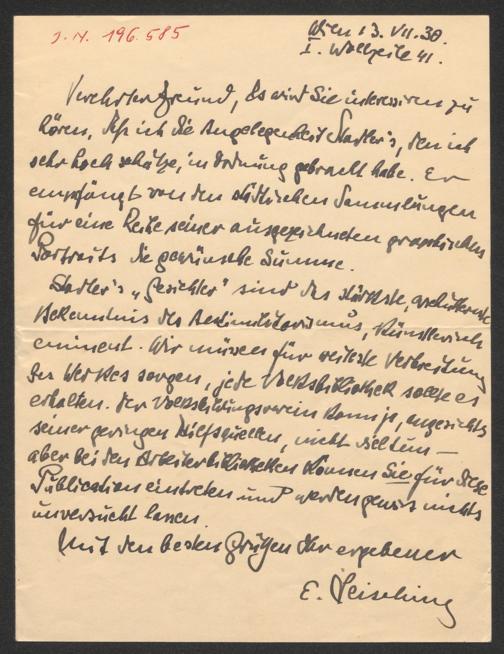 J. N. 196.585
Wien 13. VII. 30.
I. Wollzeile 41.
Verehrter Freund, Es wird Sie interessiren zu
hören, daß ich die Angelegenheit Stadler's, den ich
sehr hoch schätze, in Ordnung gebracht habe. Er
empfängt von den städtischen Sammlungen
für eine Reihe seiner ausgezeichneten graphischen
Portraits die gewünschte Summe.
Stadler's „Gesichter" sind das stärkste, erschütterndste
Bekenntnis des Antimilitarismus, künstlerisch
eminent. Wir müssen für weiteste Verbreitung
des Werkes sorgen, jede Volksbibliothek sollte es
erhalten. Der Volksbildungsverein kann ja, angesichts
seiner geringen Hilfsquellen, nicht viel tun —
aber bei den Arbeiterbibliotheken können Sie für diese
Publication eintreten und werden gewiss nichts
unversucht lassen.
Mit den besten Grüßen Ihr ergebener
E. Leisching